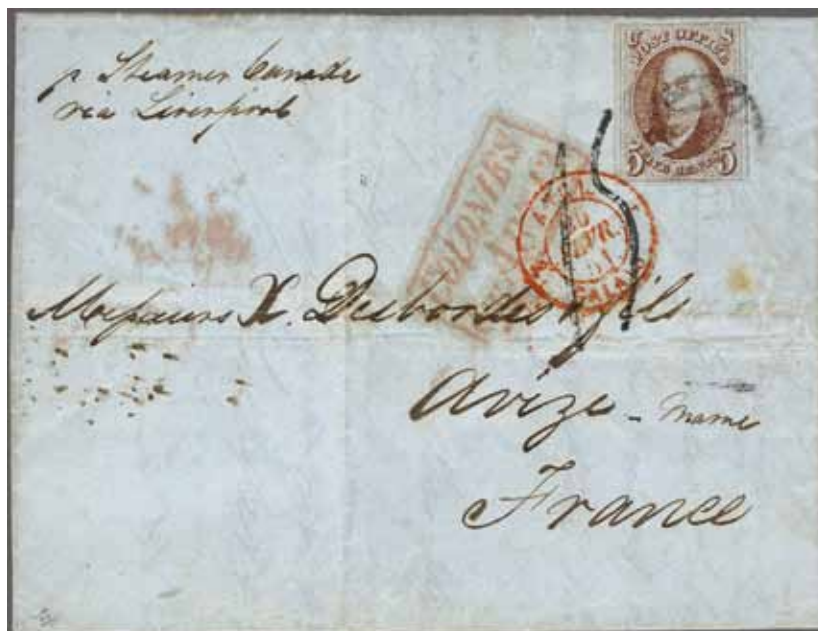 p Steamer Canada
via Liverpool
POST OFFICE
5 FIVE CENTS 5
COLONIES
15
Messieurs X. Desbordes & fils
Avize - Marne
France